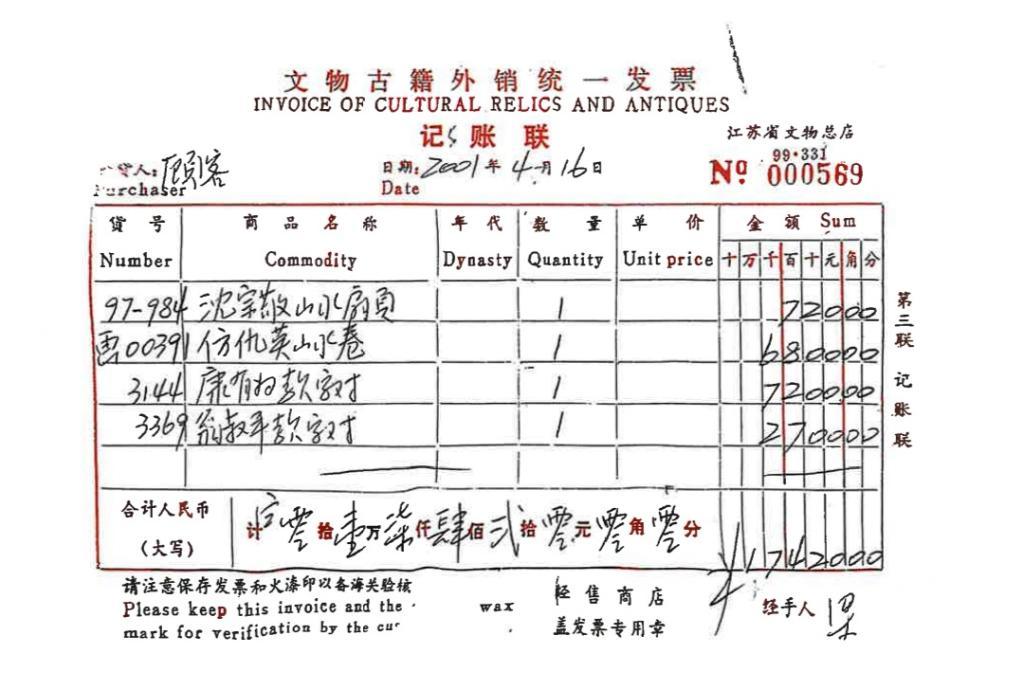 文物古籍外销统一发票
INVOICE OF CULTURAL RELICS AND ANTIQUES
记账联
江苏省文物总店
货人:顾客 日期:2001年4月16日 99·331
Purchaser Date Nº 000569
货号 商品名称 年代 数量 单价 金额 Sum
Number Commodity Dynasty Quantity Unit price 十万千百十元角分
97-984 沈宗敬山水扇页 1 72000
云00391 仿仇英山水卷 1 680000
3144 康有为款字对 1 720000
3369 翁叔平款字对 1 270000
第三联 记账联
合计人民币 计 零拾壹万柒仟肆佰贰拾零元零角零分
(大写) ¥1742000
请注意保存发票和火漆印以备海关验核 经售商店 经手人
Please keep this invoice and the wax
mark for verification by the cu 盖发票专用章